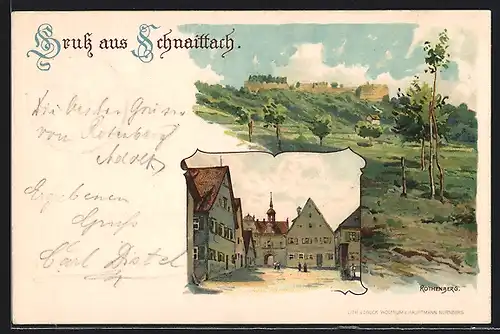 Gruß aus Schnaittach.
Die besten Grüsse
von Rotenberg
Adolf
Ergebenen
Gruss
Carl Distel
ROTHENBERG.
LITH. & DRUCK
NÜRNBERG